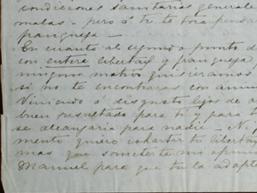 condiciones sanitarias generale
malas - pero si te
franqueza -
En cuanto al egimio a pronto d
con entera libertad y franqueza
ningun motivo quisieramos
si no te encontraras con anim
viniendo á disgusto lejos de
buen resultado para ti y para
se alcanzaria para nadie -
mento quiero cohartar tu libertad
mas que someterte mi
Manuel para que tu la adopte